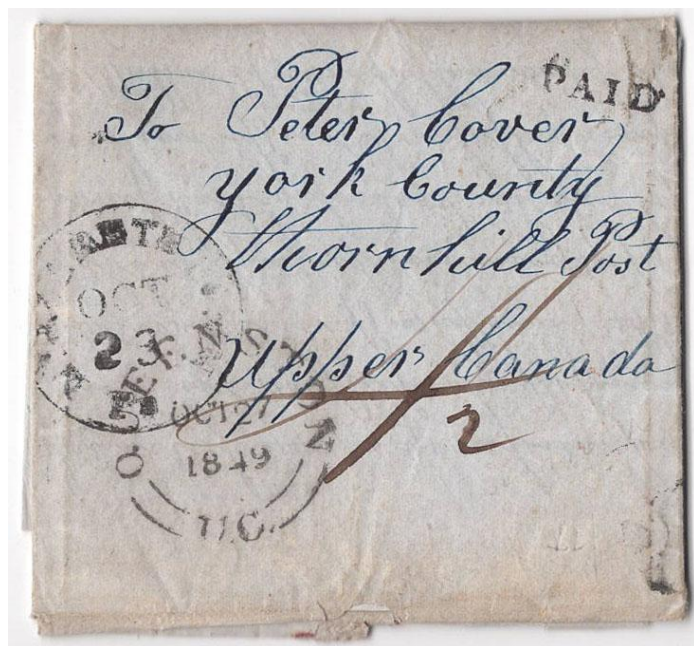 PAID
To Peter Cover
York County
Thornhill Post
Upper Canada
OCT
23
QUEENSTON
OCT 27
1849
U.C.
2